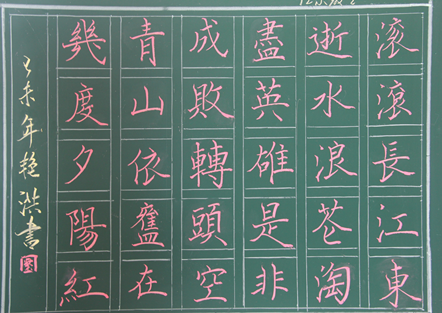 滚滾長江東
逝水浪花淘
盡英雄是非
成敗轉頭空
青山依舊在
幾度夕陽紅
乙未年艳洪書